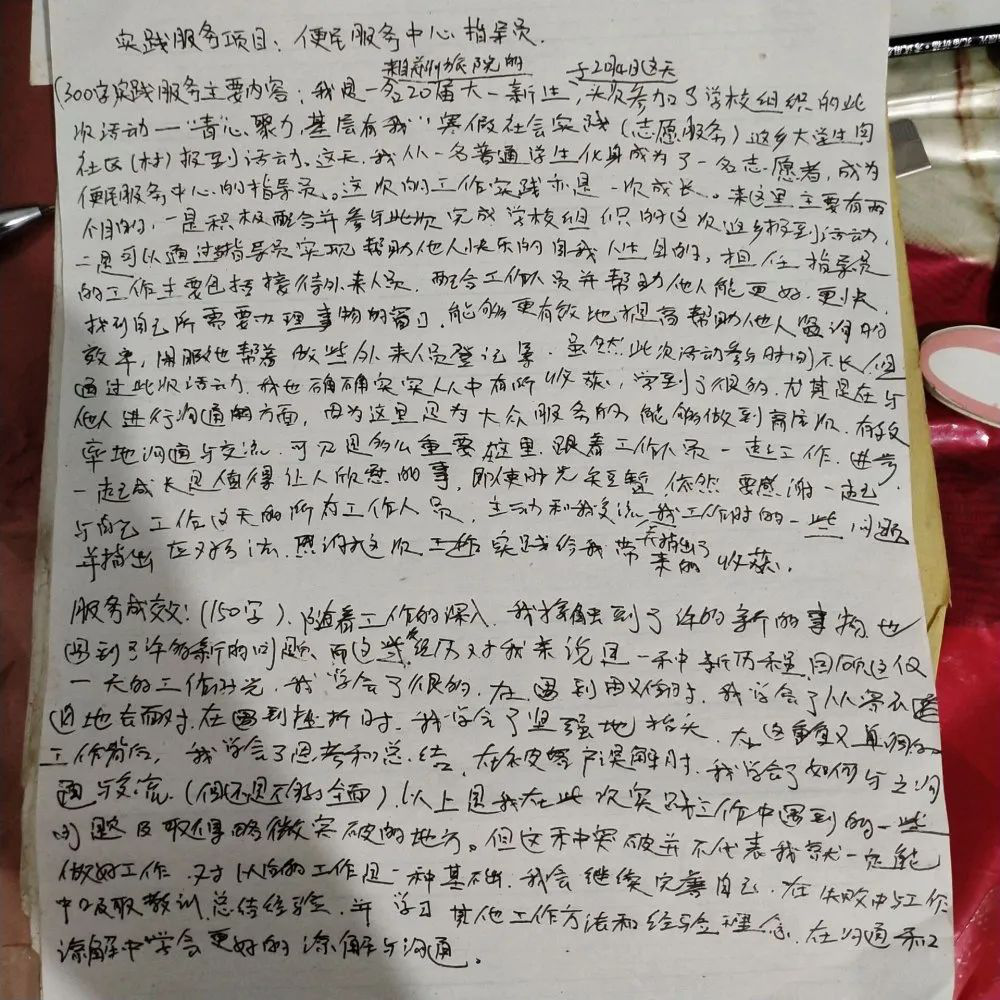 实践服务项目：便民服务中心指导员.
来自荆州旅院的 于2月4日这天
(300字实践服务主要内容：我是一名20届大一新生，头次参加了学校组织的此
次活动一"青心聚力,基层有我"寒假社会实践(志愿服务)返乡大学生向
社区(村)报到活动。这天，我从一名普通学生化身成为了一名志愿者，成为
便民服务中心的指导员。这次的工作实践亦是一次成长。来这里主要有两
个目的，一是积极配合并参与此次完成学校组织的这次返乡报到活动，
二是可以通过指导员实现帮助他人快乐的自我人生目的，担任指导员
的工作主要包括接待外来人员，配合工作人员并帮助他人能更好.更快
找到自己所需要办理事物的窗口，能够更有效地提高帮助他人咨询的
效率，闲暇也帮着做些外来人员登记等.虽然此次活动参与时间不长,但
通过此次活动，我也确确实实从中有所收获，学到了很多，尤其是在与
他人进行沟通的方面，因为这里是为大众服务的，能够做到高质、有效
率地沟通与交流，可见是多么重要，在这里，跟着工作人员一起工作，进步
一起成长是值得让人欣慰的事，即使时光短暂，依然要感谢一起
与自己工作这天的所有工作人员，主动和我交流,我工作时的一些问题
并指出应对方法，感谢这次工作实践给我带来的收获.
服务成效：(150字).随着工作的深入，我接触到了许多新的事物,也
遇到了许多新的问题、而这些经历对我来说是一种新历程，回顾这仅
一天的工作时光，我学会了很多，在遇到困难时，我学会了从容不迫
地去面对，在遇到挫折时，我学会了坚强地抬头，在这重复又单调的
工作背后，我学会了思考和总结，在被客户误解时，我学会了如何与之沟
通与交流.(但还是不够全面).以上是我在此次实践工作中遇到的一些
问题及取得略微突破的地方。但这种突破并不代表我就一定能
做好工作，对以后的工作是一种基础，我会继续完善自己，在失败中与工作
中吸取教训,总结经验，并学习其他工作方法和经验理念，在沟通和
谅解中学会更好的谅解与沟通。